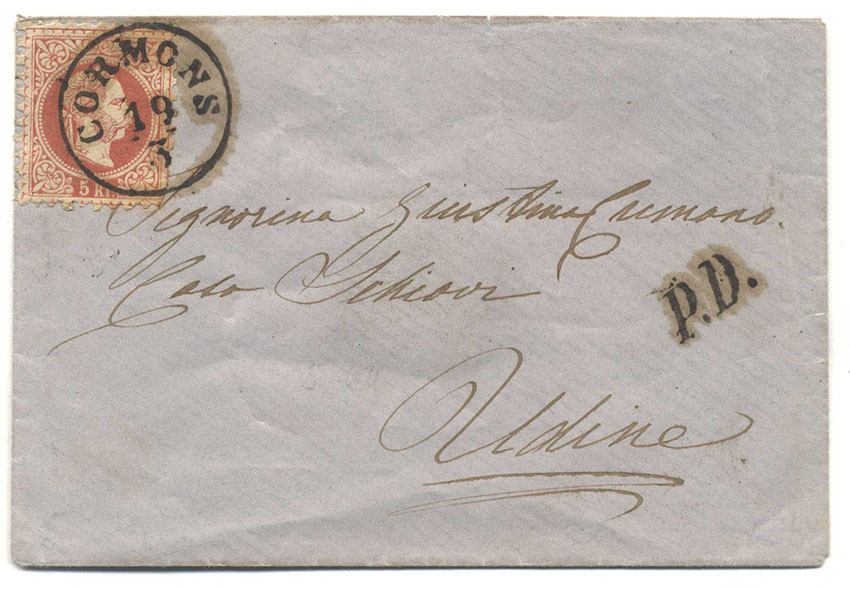 CORMONS
19
5 KR
Signorina Giustina Cumano.
Casa Schiavi
P.D.
Udine